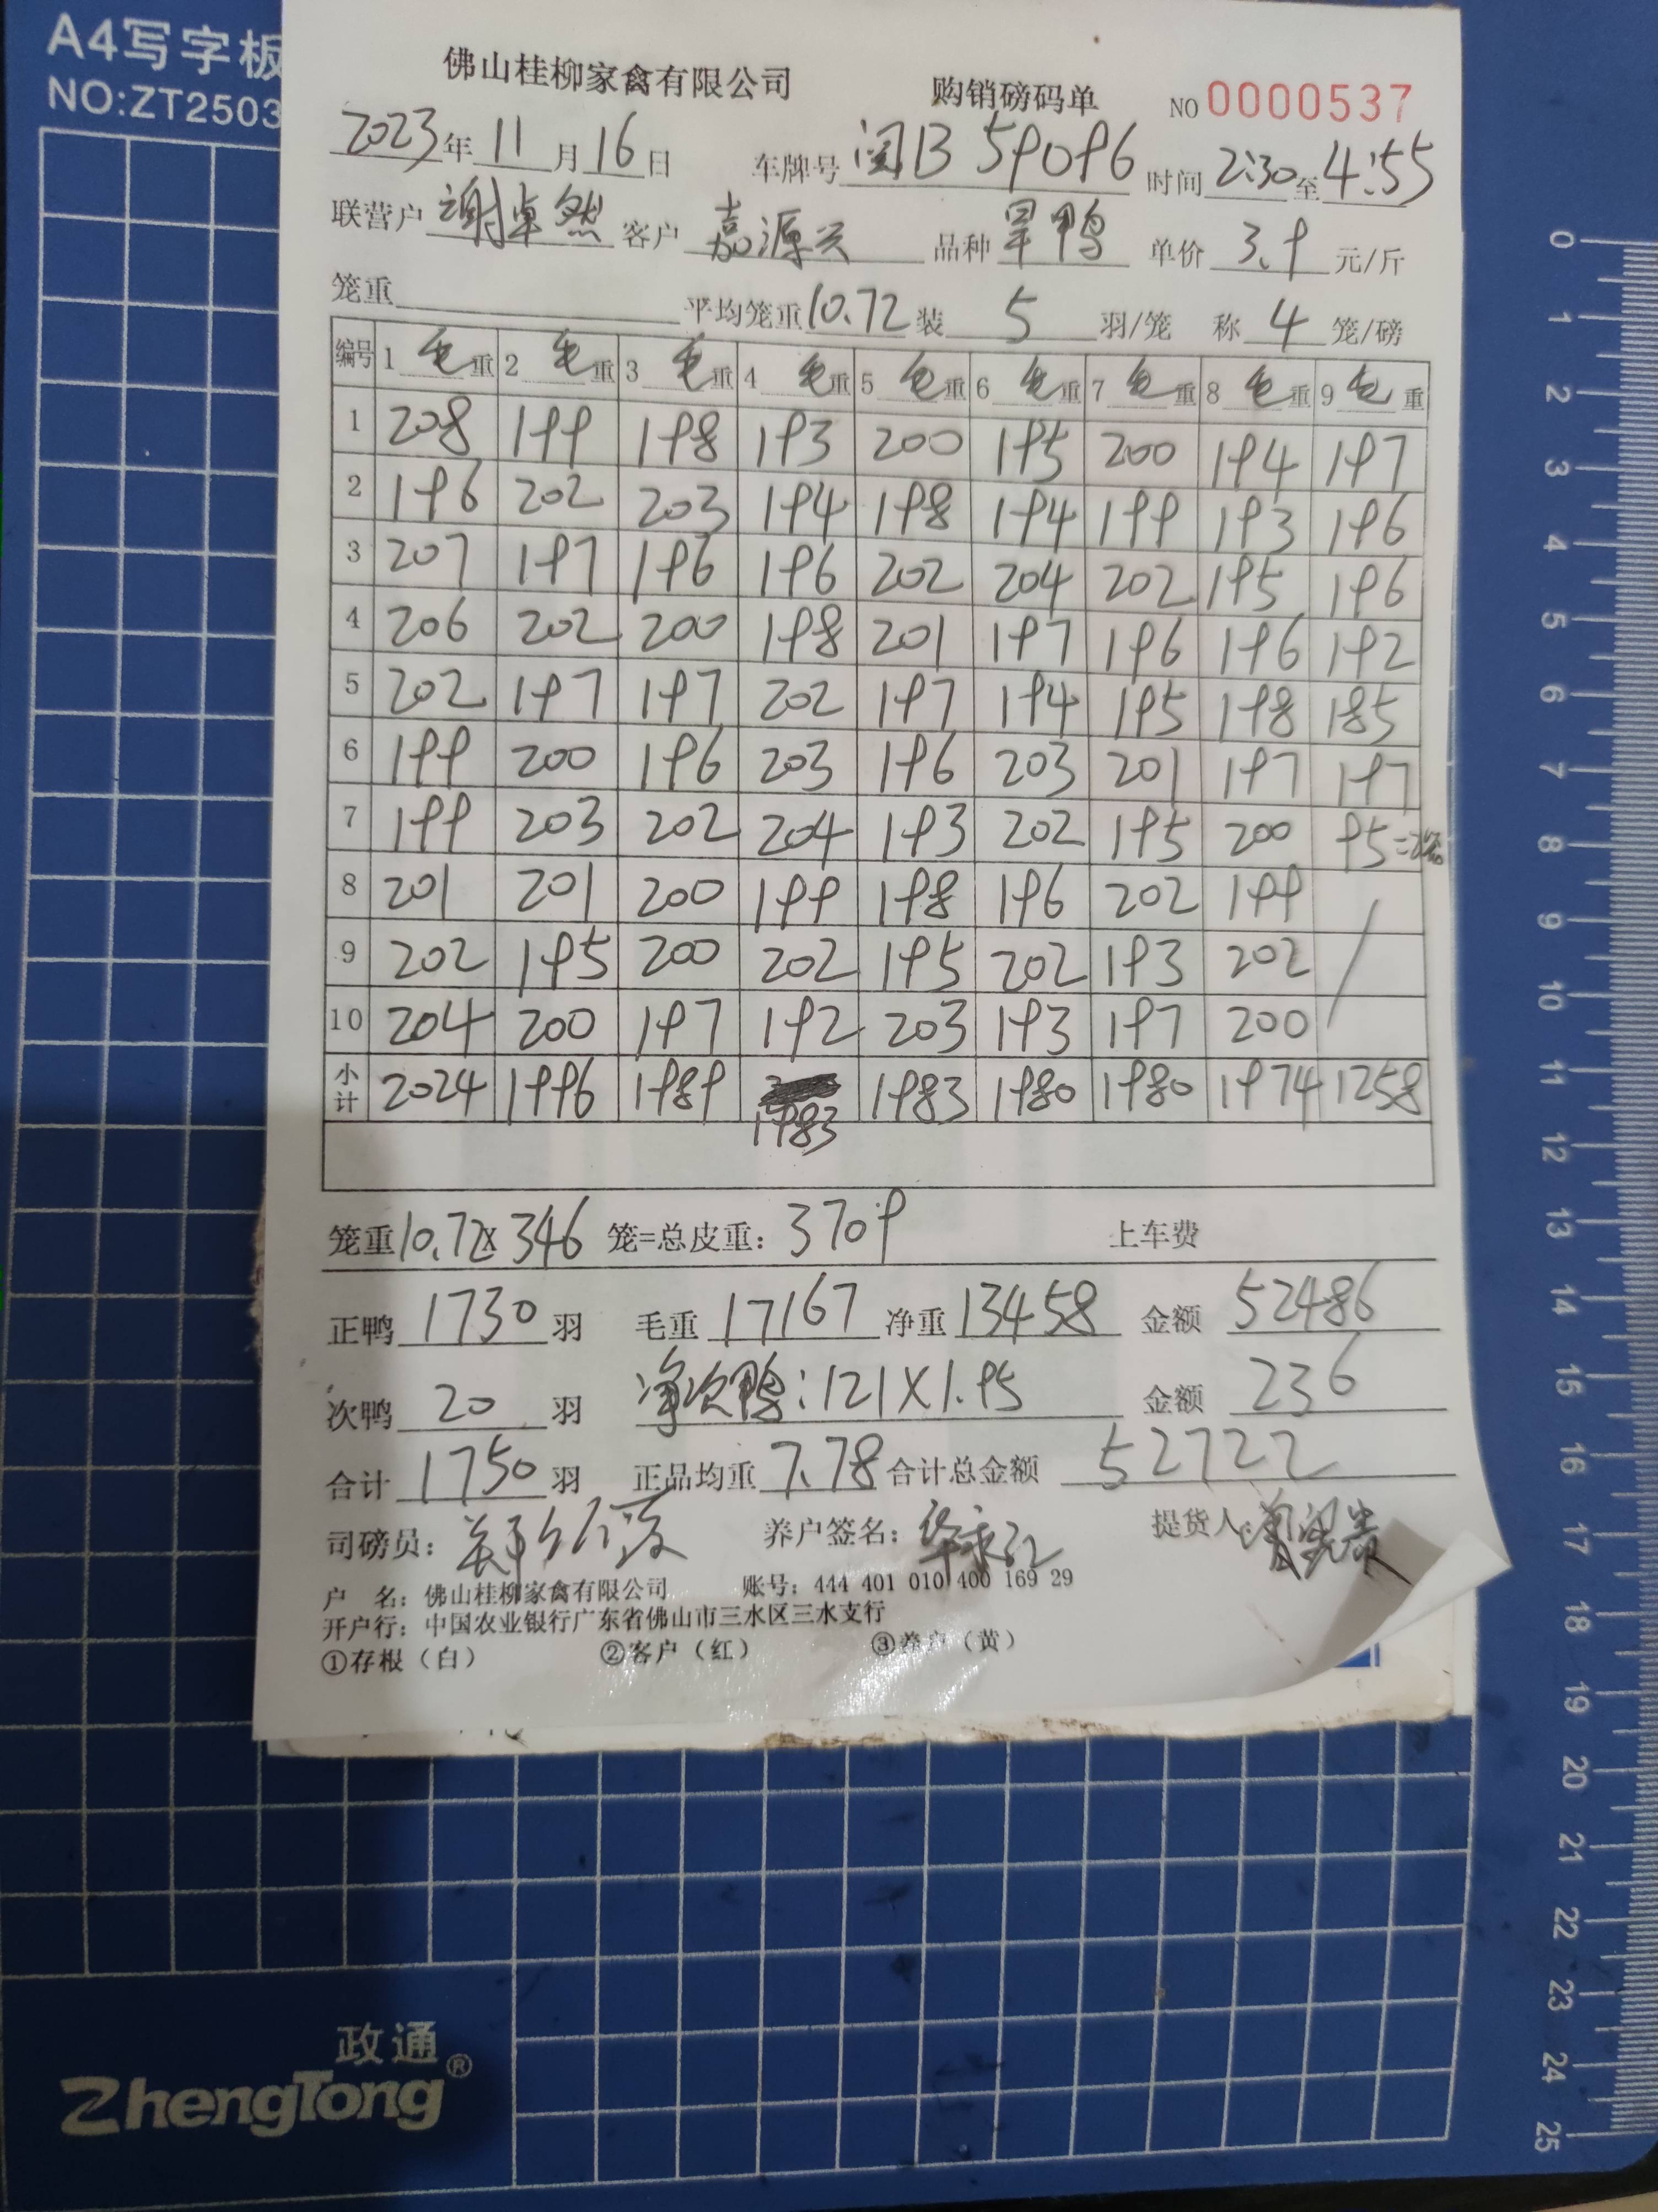 A4写字板
NO:ZT2503
佛山桂柳家禽有限公司 购销磅码单 NO 0000537
2023年11月16日 车牌号 闽B 59096 时间 2:30 至 4:55
联营户 谢卓然 客户 嘉源兴 品种 旱鸭 单价 3.9 元/斤
笼重 平均笼重 10.72 装 5 羽/笼 称 4 笼/磅
编号 1 毛重 2 毛重 3 毛重 4 毛重 5 毛重 6 毛重 7 毛重 8 毛重 9 毛重
1 208 199 198 193 200 195 200 194 197
2 196 202 203 194 198 194 199 193 196
3 207 197 196 196 202 204 202 195 196
4 206 202 200 198 201 197 196 196 192
5 202 197 197 202 197 194 195 198 185
6 199 200 196 203 196 203 201 197 197
7 199 203 202 204 193 202 195 200 95=2笼
8 201 201 200 199 198 196 202 199
9 202 195 200 202 195 202 193 202
10 204 200 197 192 203 193 197 200
小计 2024 1996 1989 1983 1983 1980 1980 1974 1258
笼重 10.72 x 346 笼=总皮重: 3709 上车费
正鸭 1730 羽 毛重 17167 净重 13458 金额 52486
次鸭 20 羽 净次鸭:121X1.95 金额 236
合计 1750 羽 正品均重 7.78 合计总金额 52722
司磅员: 养户签名: 提货人:
户 名: 佛山桂柳家禽有限公司 账号: 444 401 010 400 169 29
开户行: 中国农业银行广东省佛山市三水区三水支行
①存根(白) ②客户(红) ③养户(黄)
0
1
2
3
4
5
6
7
8
9
10
11
12
13
14
15
16
17
18
19
20
21
22
23
24
25
政通
ZhengTong®